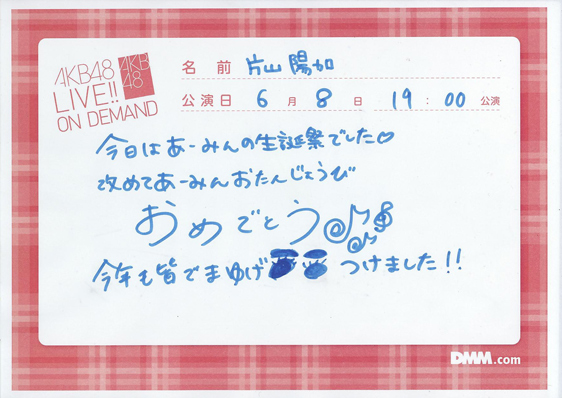 AKB48
LIVE!!
ON DEMAND
AKB
48
名前 片山陽加
公演日 6月8日 19:00公演
今日はあーみんの生誕祭でした♡
改めてあーみんおたんじょうび
おめでとう♪♪
今年も皆でまゆげつけました!!
DMM.com